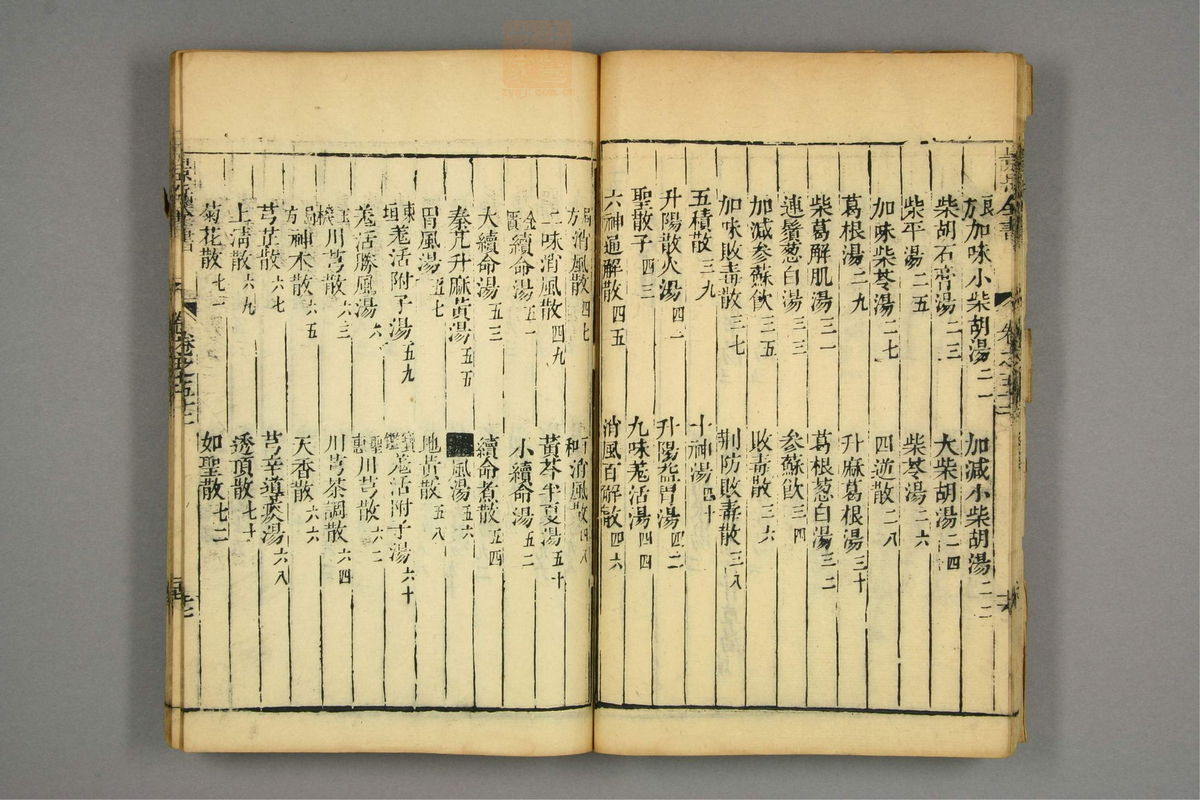 景岳全書
卷之五十二
良方加味小柴胡湯二一 加減小柴胡湯二二
柴胡石膏湯二三 大柴胡湯二四
柴平湯二五 柴苓湯二六
加味柴苓湯二七 四逆散二八
葛根湯二九 升麻葛根湯三十
柴葛解肌湯三一 葛根葱白湯三二
連鬚葱白湯三三 参蘇飲三四
加減参蘇飲三五 敗毒散三六
加味敗毒散三七 荆防敗毒散三八
五積散三九 十神湯四十
升陽散火湯四一 升陽益胃湯四二
聖散子四三 九味羗活湯四四
六神通解散四五 消風百解散四六
局方消風散四七 和消風散四八
二味消風散四九 黃芩半夏湯五十
金匱續命湯五一 小續命湯五二
大續命湯五三 續命煮散五四
秦艽升麻黃湯五五 風湯五六
胃風湯五七 地黃散五八
東垣羗活附子湯五九 寶鑑羗活附子湯六十
羗活勝風湯六 聖惠川芎散六二
玉機川芎散六三 川芎茶調散六四
局方神术散六五 天香散六六
芎芷散六七 芎辛導痰湯六八
上清散六九 透頂散七十
菊花散七一 如聖散七二